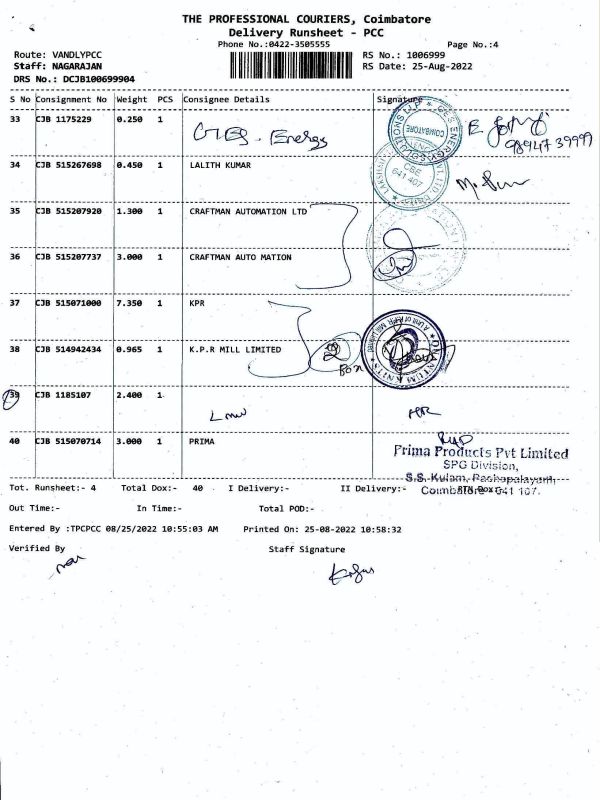 THE PROFESSIONAL COURIERS, Coimbatore
Delivery Runsheet - PCC
Phone No.:0422-3505555 Page No.:4
Route: VANDLYPCC RS No.: 1006999
Staff: NAGARAJAN RS Date: 25-Aug-2022
DRS No.: DCJB100699904
S No Consignment No Weight PCS Consignee Details Signature
33 CJB 1175229 0.250 1
GES Energy
34 CJB 515267698 0.450 1 LALITH KUMAR
CBE
641 407
35 CJB 515207920 1.300 1 CRAFTMAN AUTOMATION LTD
36 CJB 515207737 3.000 1 CRAFTMAN AUTO MATION
37 CJB 515071000 7.350 1 KPR
38 CJB 514942434 0.965 1 K.P.R MILL LIMITED
2
Box
39 CJB 1185107 2.400 1
Lmw
40 CJB 515070714 3.000 1 PRIMA
Prima Products Pvt Limited
SPG Division,
S.S. Kulam,
Coimbatore 641 107.
Tot. Runsheet:- 4 Total Dox:- 40 I Delivery:- II Delivery:-
Out Time:- In Time:- Total POD:-
Entered By :TPCPCC 08/25/2022 10:55:03 AM Printed On: 25-08-2022 10:58:32
Verified By Staff Signature